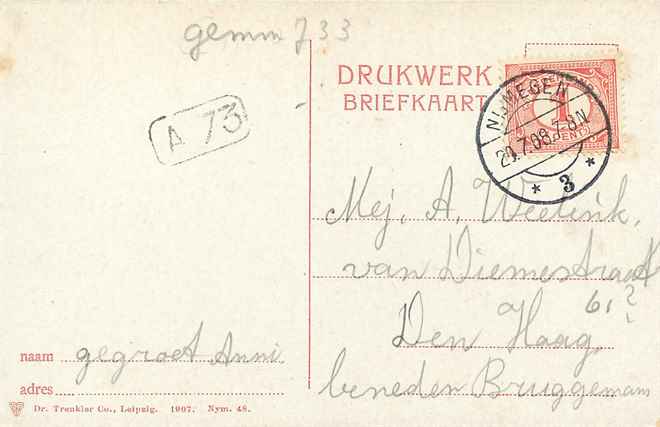 gemm 733
DRUKWERK
BRIEFKAART
NIJMEGEN
20.7.08.7-8N
3
1
CENT
A 73
Mej. A. Weelink.
van Diemestraat
61?
Den Haag,
beneden Bruggemann
naam gegroet Anni
adres
Dr. Trenkler Co., Leipzig. 1907. Nym. 48.